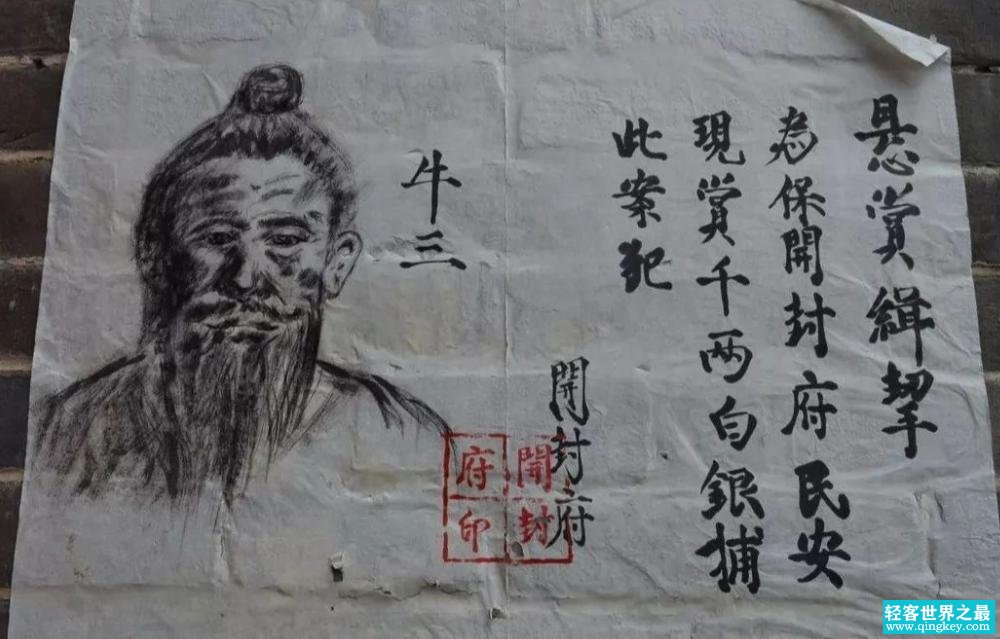 悬赏緝拏
為保開封府民安
現賞千两白銀捕
此案犯
開封府
開封府印
牛三
轻客世界之最
www.qingkey.com